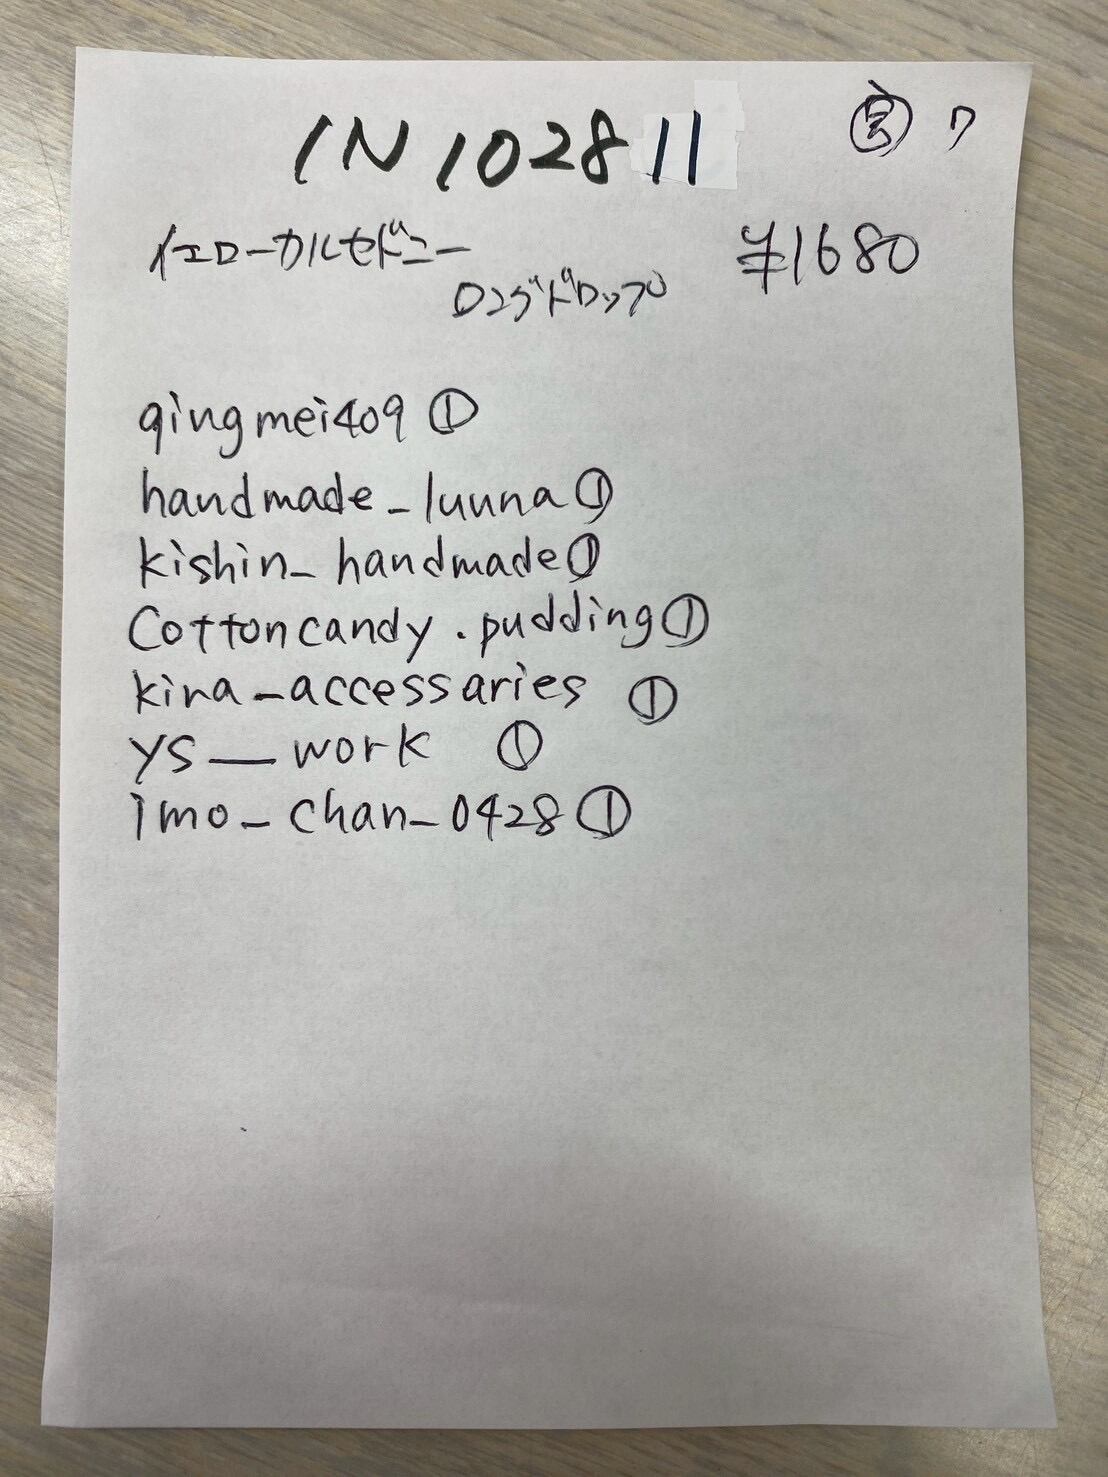 IN102811
7
イエローカルセドニー ¥1680
ロングドロップ
qingmei409 ①
handmade_luuna①
kishin_handmade①
Cottoncandy.pudding①
kira_accessaries ①
ys__work ①
imo_chan_0428①